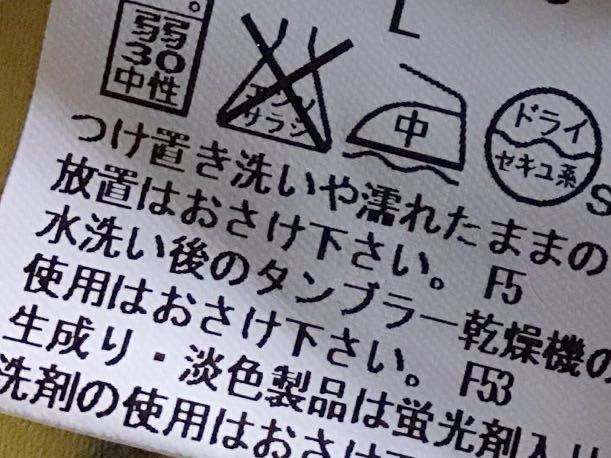 L
弱
30
中性
エンソ
サラシ
中
ドライ
セキユ系
S
つけ置き洗いや濡れたままの
放置はおさけ下さい。 F5
水洗い後のタンブラー乾燥機の
使用はおさけ下さい。 F53
生成り・淡色製品は蛍光剤入り
洗剤の使用はおさけ下